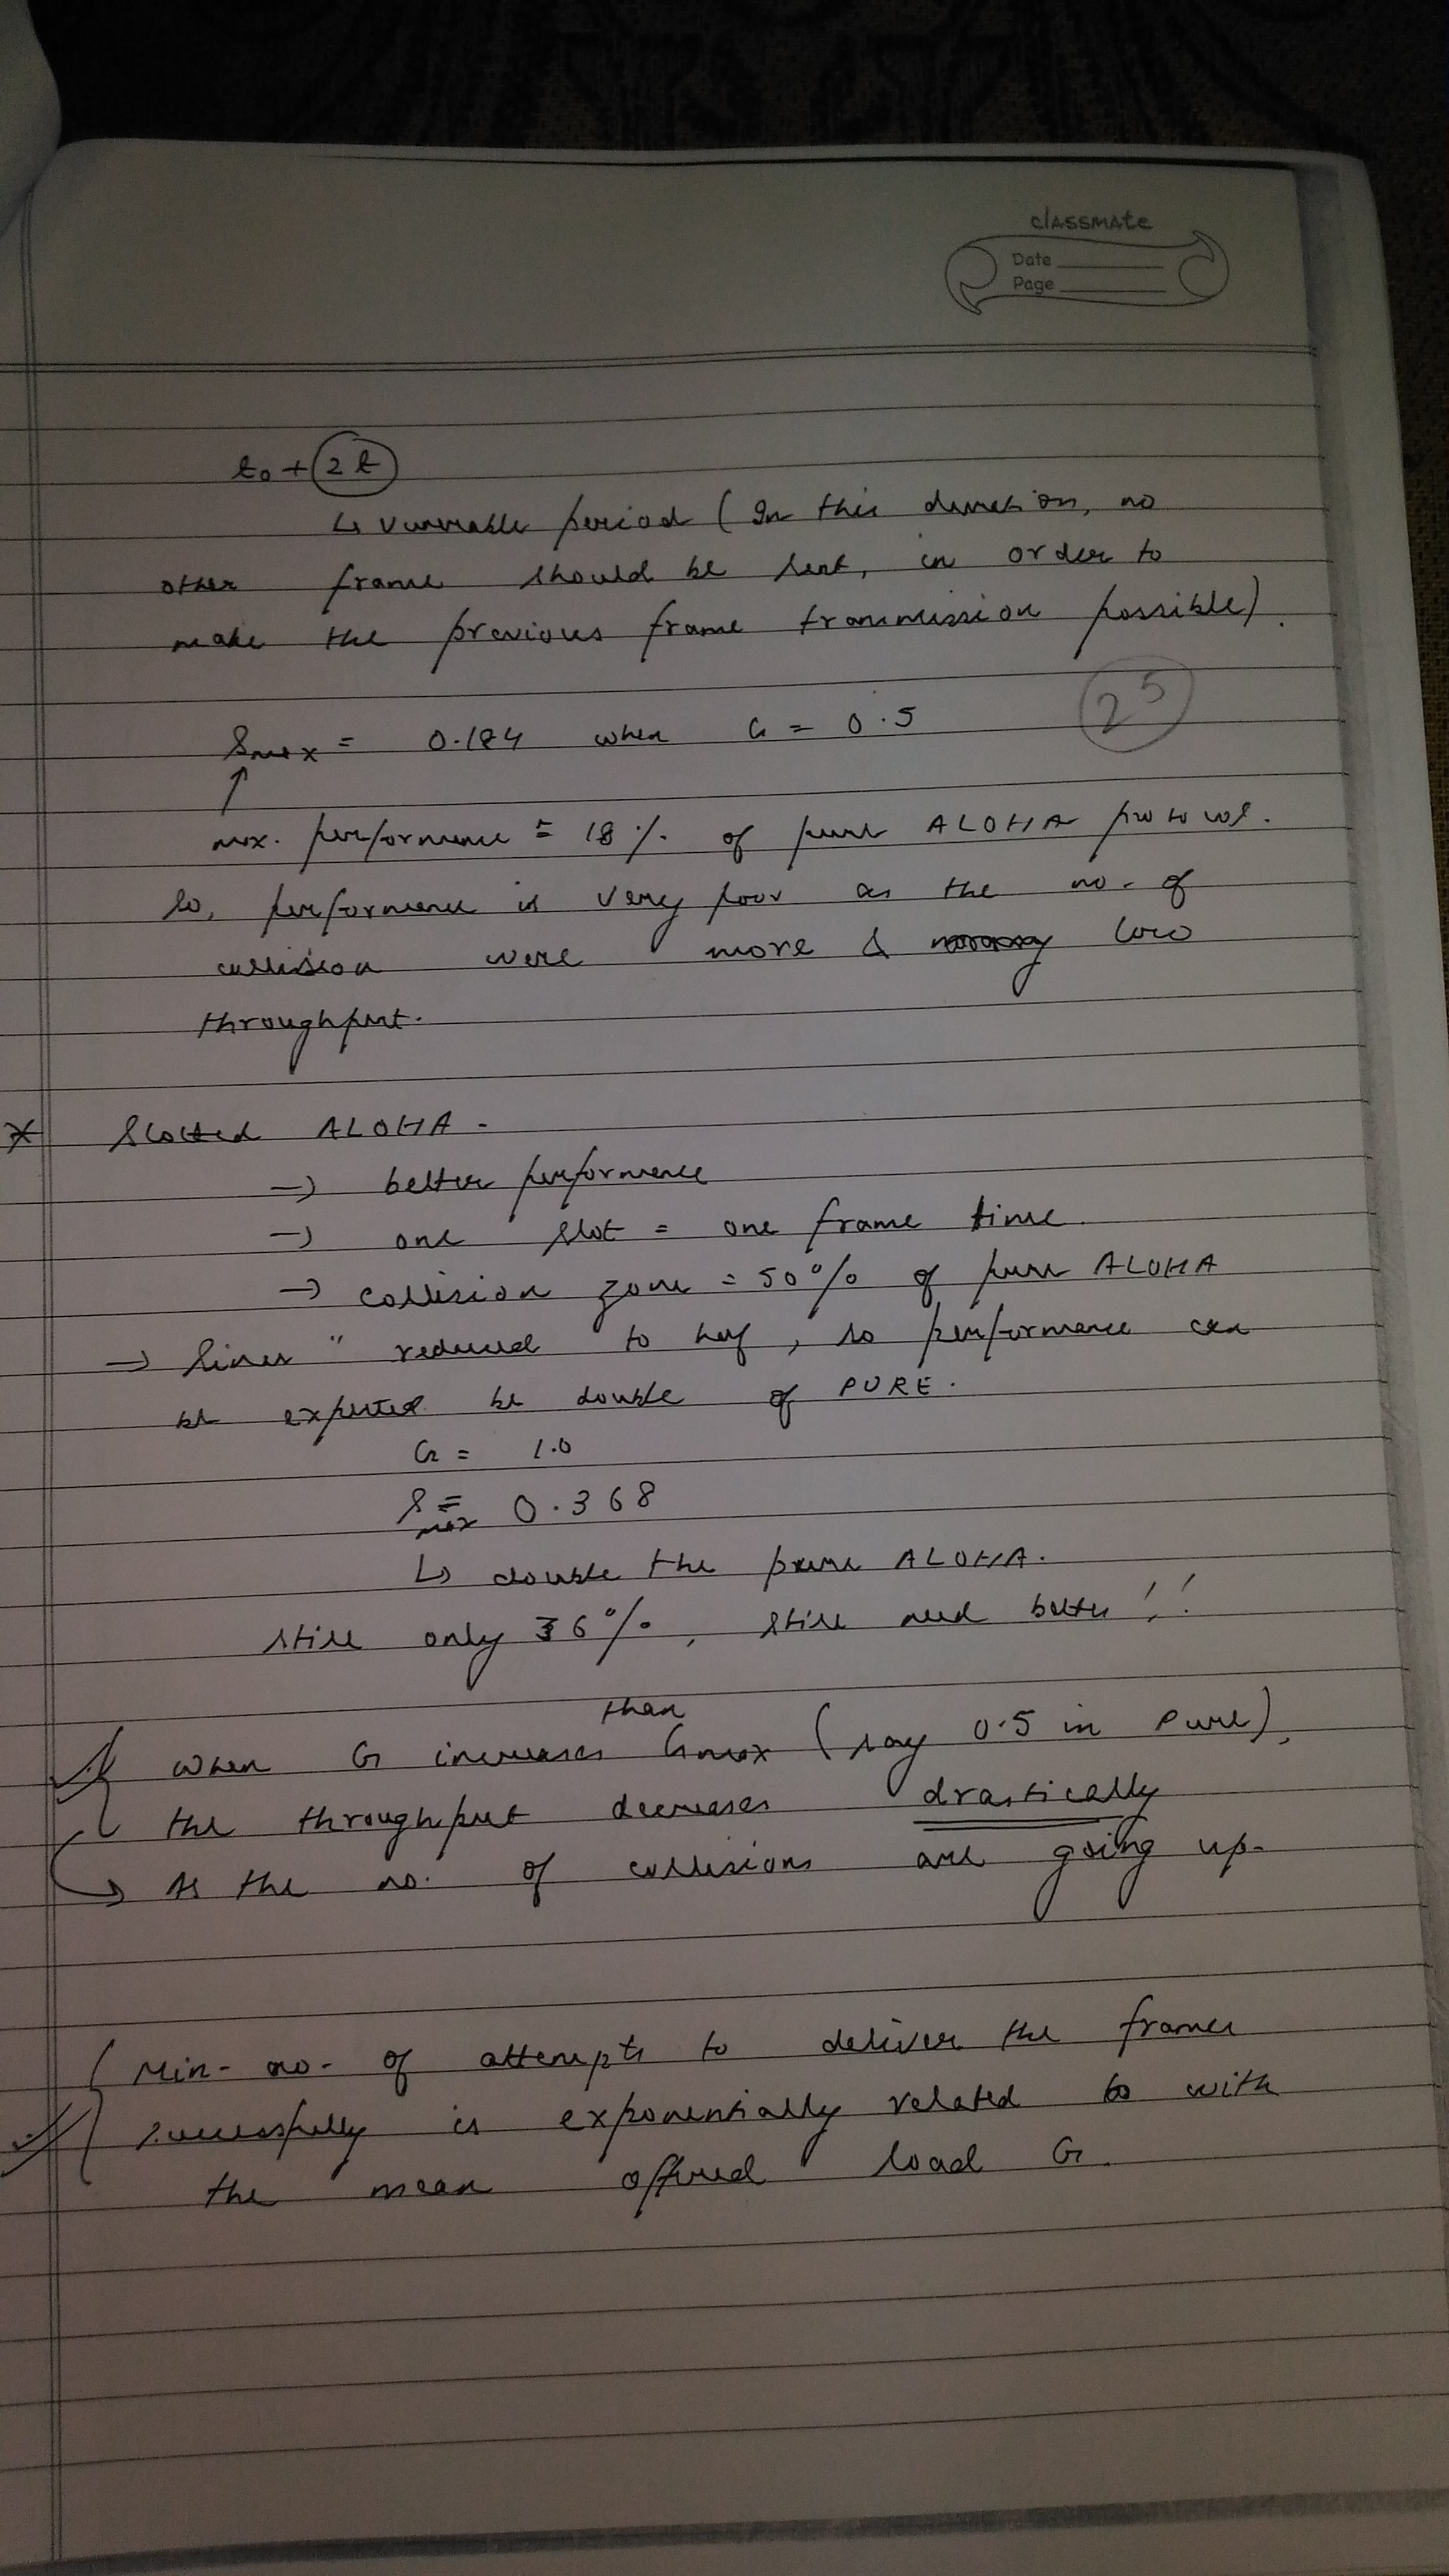 classmate
Date
Page
t₀ + 2t
↳ vunrable period ( In this duration, no
other frame should be sent, in order to
make the previous frame transmission possible).
25
Smax = 0.184 when G = 0.5
↑
max. performance = 18 % of pure ALOHA protocol.
So, performance is very poor as the no. of
collision were more & low
throughput.
* Slotted ALOHA -
→ better performance
→ one slot = one frame time.
→ collision zone = 50% of pure ALOHA
→ Since " reduced to half, so performance can
be expected be double of PURE.
G = 1.0
Smax = 0.368
↳ double the pure ALOHA.
still only 36%, still need better !!
than
when G increases Gmax (say 0.5 in Pure),
the throughput decreases drastically
→ As the no. of collisions are going up.
Min- no- of attempts to deliver the frames
successfully is exponentially related to with
the mean offered load G.